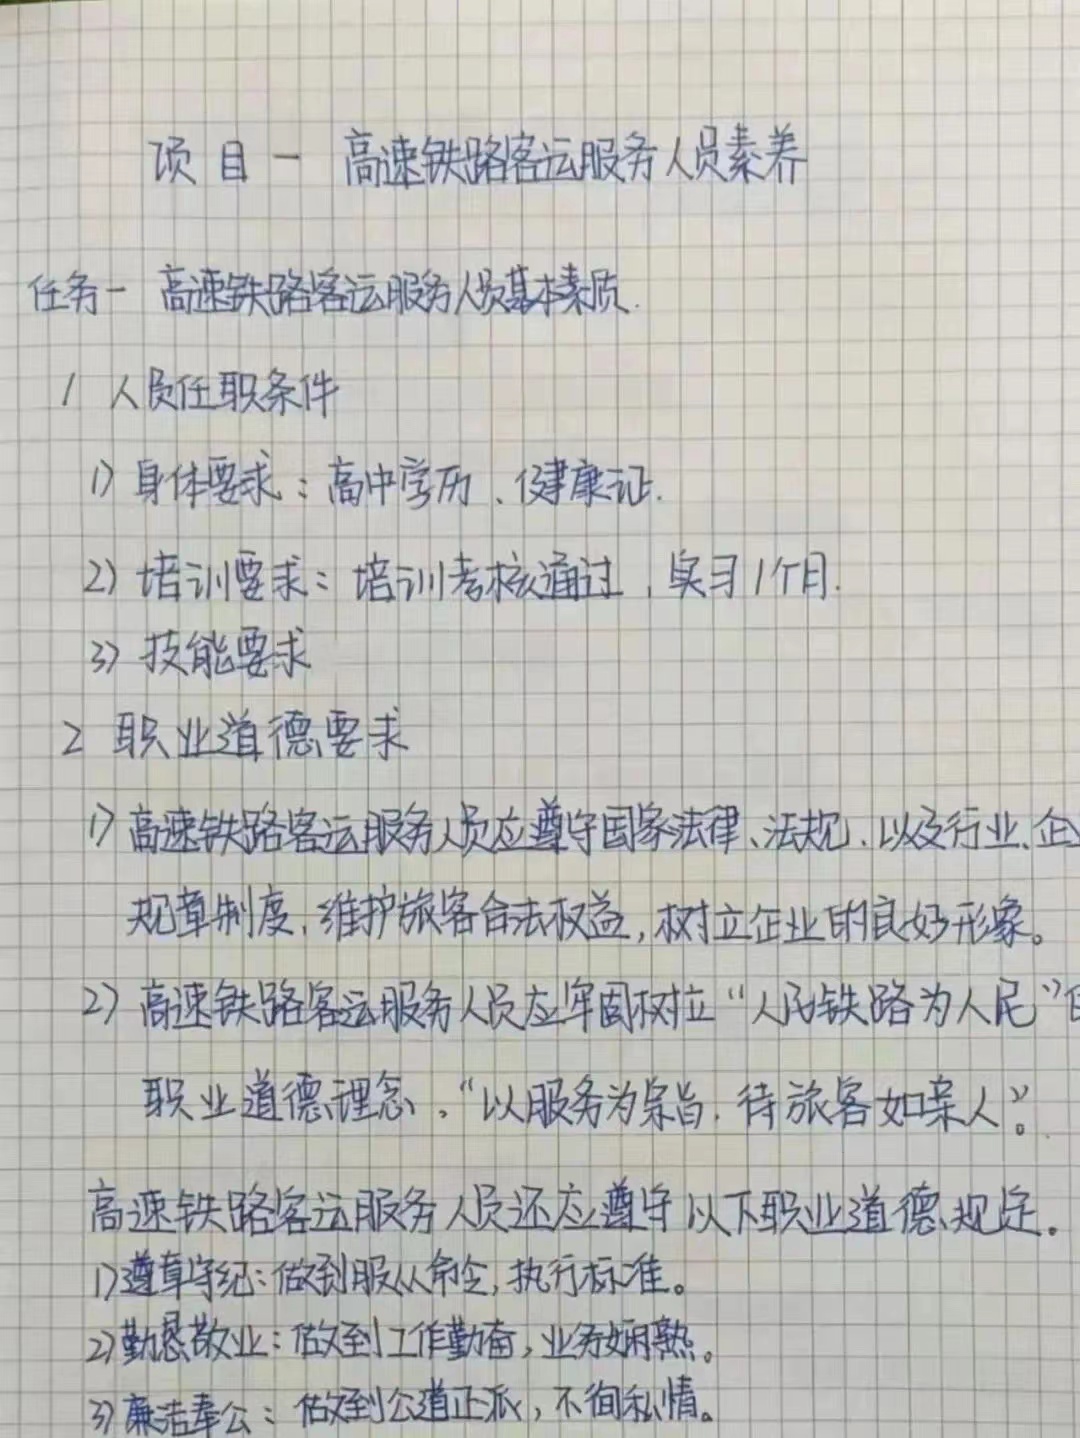 项目一 高速铁路客运服务人员素养
任务一 高速铁路客运服务人员基本素质.
1 人员任职条件
1) 身体要求：高中学历、健康证.
2) 培训要求：培训考核通过，实习1个月.
3) 技能要求
2 职业道德要求
1) 高速铁路客运服务人员应遵守国家法律、法规，以及行业、企
规章制度，维护旅客合法权益，树立企业的良好形象。
2) 高速铁路客运服务人员应牢固树立“人民铁路为人民”
职业道德理念，“以服务为宗旨，待旅客如亲人”。
高速铁路客运服务人员还应遵守以下职业道德规定.
1) 遵章守纪：做到服从命令，执行标准。
2) 勤恳敬业：做到工作勤奋，业务娴熟。
3) 廉洁奉公：做到公道正派，不徇私情。